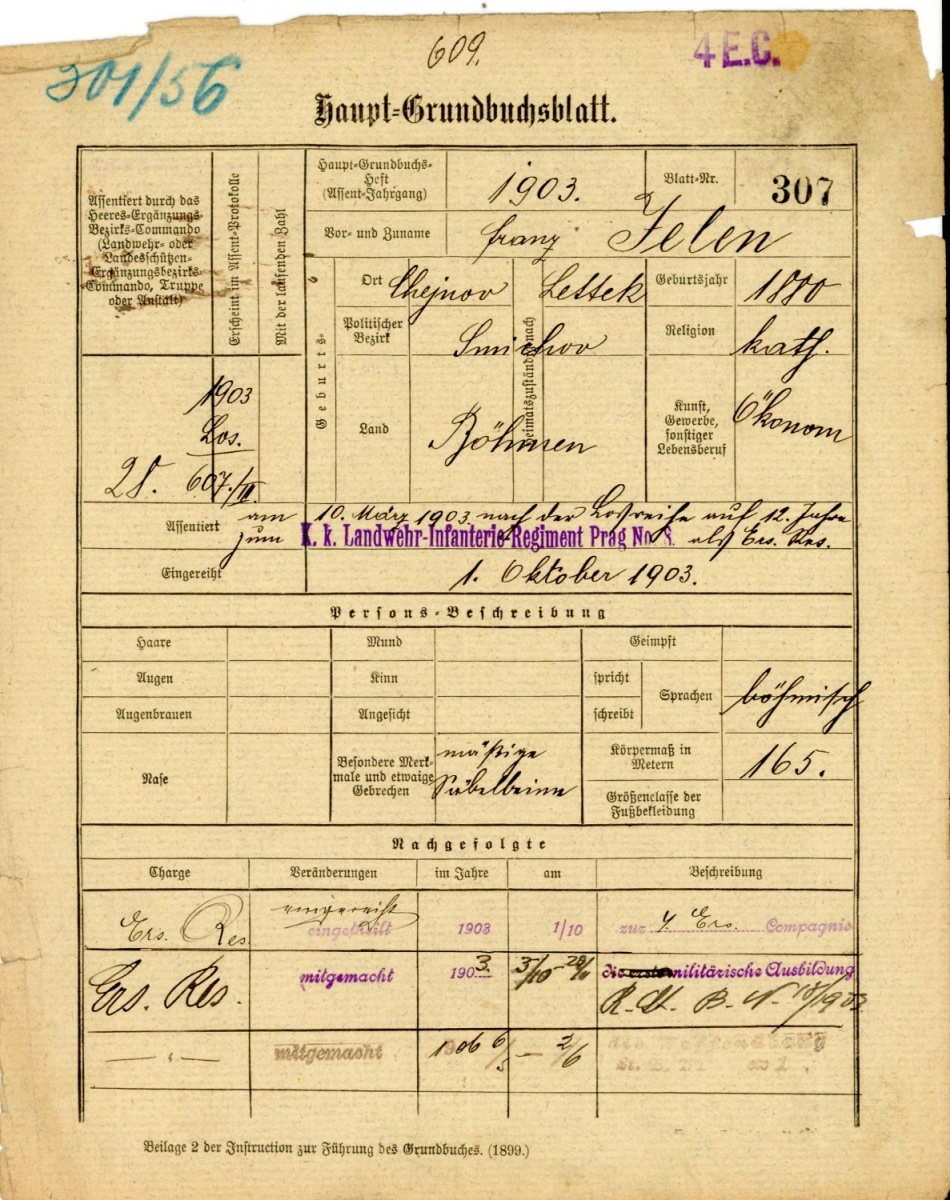 301/56
609.
4 E.C.
Haupt-Grundbuchsblatt.
Assentiert durch das
Heeres-Ergänzungs-
Bezirks-Commando
(Landwehr- oder
Landesschützen-
Ergänzungsbezirks-
Commando, Truppe
oder Anstalt)
Erscheint im Assent-Protokolle
Mit der laufenden Zahl
Haupt-Grundbuchs-
Heft
(Assent-Jahrgang)
1903.
Blatt-Nr.
307
Vor- und Zuname
Franz Jelen
Geburts-
Ort
Chejnov
Lettek
Geburtsjahr
1880
Politischer
Bezirk
Smichov
Heimatszuständig nach
Religion
kath.
Land
Böhmen
Kunst,
Gewerbe,
sonstiger
Lebensberuf
Ökonom
1903
Los.
28. 607/II.
Assentiert
am 10. März 1903 nach der Losreihe auf 12 Jahre
zum K. k. Landwehr-Infanterie-Regiment Prag No. 8. als Ers. Res.
Eingereiht
1. Oktober 1903.
Persons-Beschreibung
Haare
Mund
Geimpft
Augen
Kinn
spricht
Sprachen
böhmisch
Augenbrauen
Angesicht
schreibt
Nase
Besondere Merk-
male und etwaige
Gebrechen
mäßige
Säbelbeine
Körpermaß in
Metern
165.
Größenclasse der
Fußbekleidung
Nachgefolgte
Charge
Veränderungen
im Jahre
am
Beschreibung
Ers. Res.
eingereiht
eingetheilt
1903
1/10
zur 4. Ers. Compagnie
Ers. Res.
mitgemacht
1903.
3/10 - 28/11
die erste militärische Ausbildung
R. St. B. N. 18/1903
— " —
mitgemacht
1906
6/5 — 2/6
die Waffenübung
Beilage 2 der Instruction zur Führung des Grundbuches. (1899.)